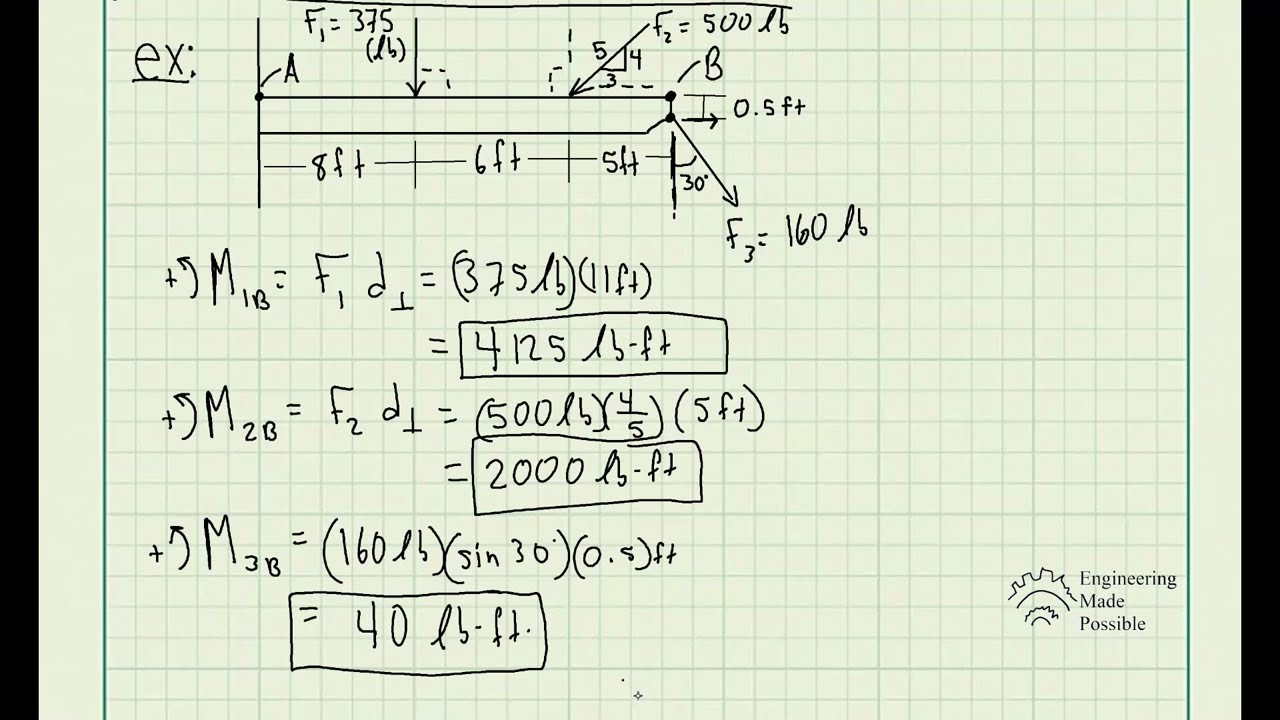 ex:
F₁ = 375
(lb)
F₂ = 500 lb
5
4
3
A
B
0.5ft
8ft
6ft
5ft
30°
F₃ = 160 lb
+↺ M₁B = F₁ d⊥ = (375 lb)(11ft)
= 4125 lb·ft
+↺ M₂B = F₂ d⊥ = (500 lb)(4/5)(5ft)
= 2000 lb·ft
+↺ M₃B = (160 lb)(sin 30°)(0.5)ft
= 40 lb·ft.
Engineering
Made
Possible